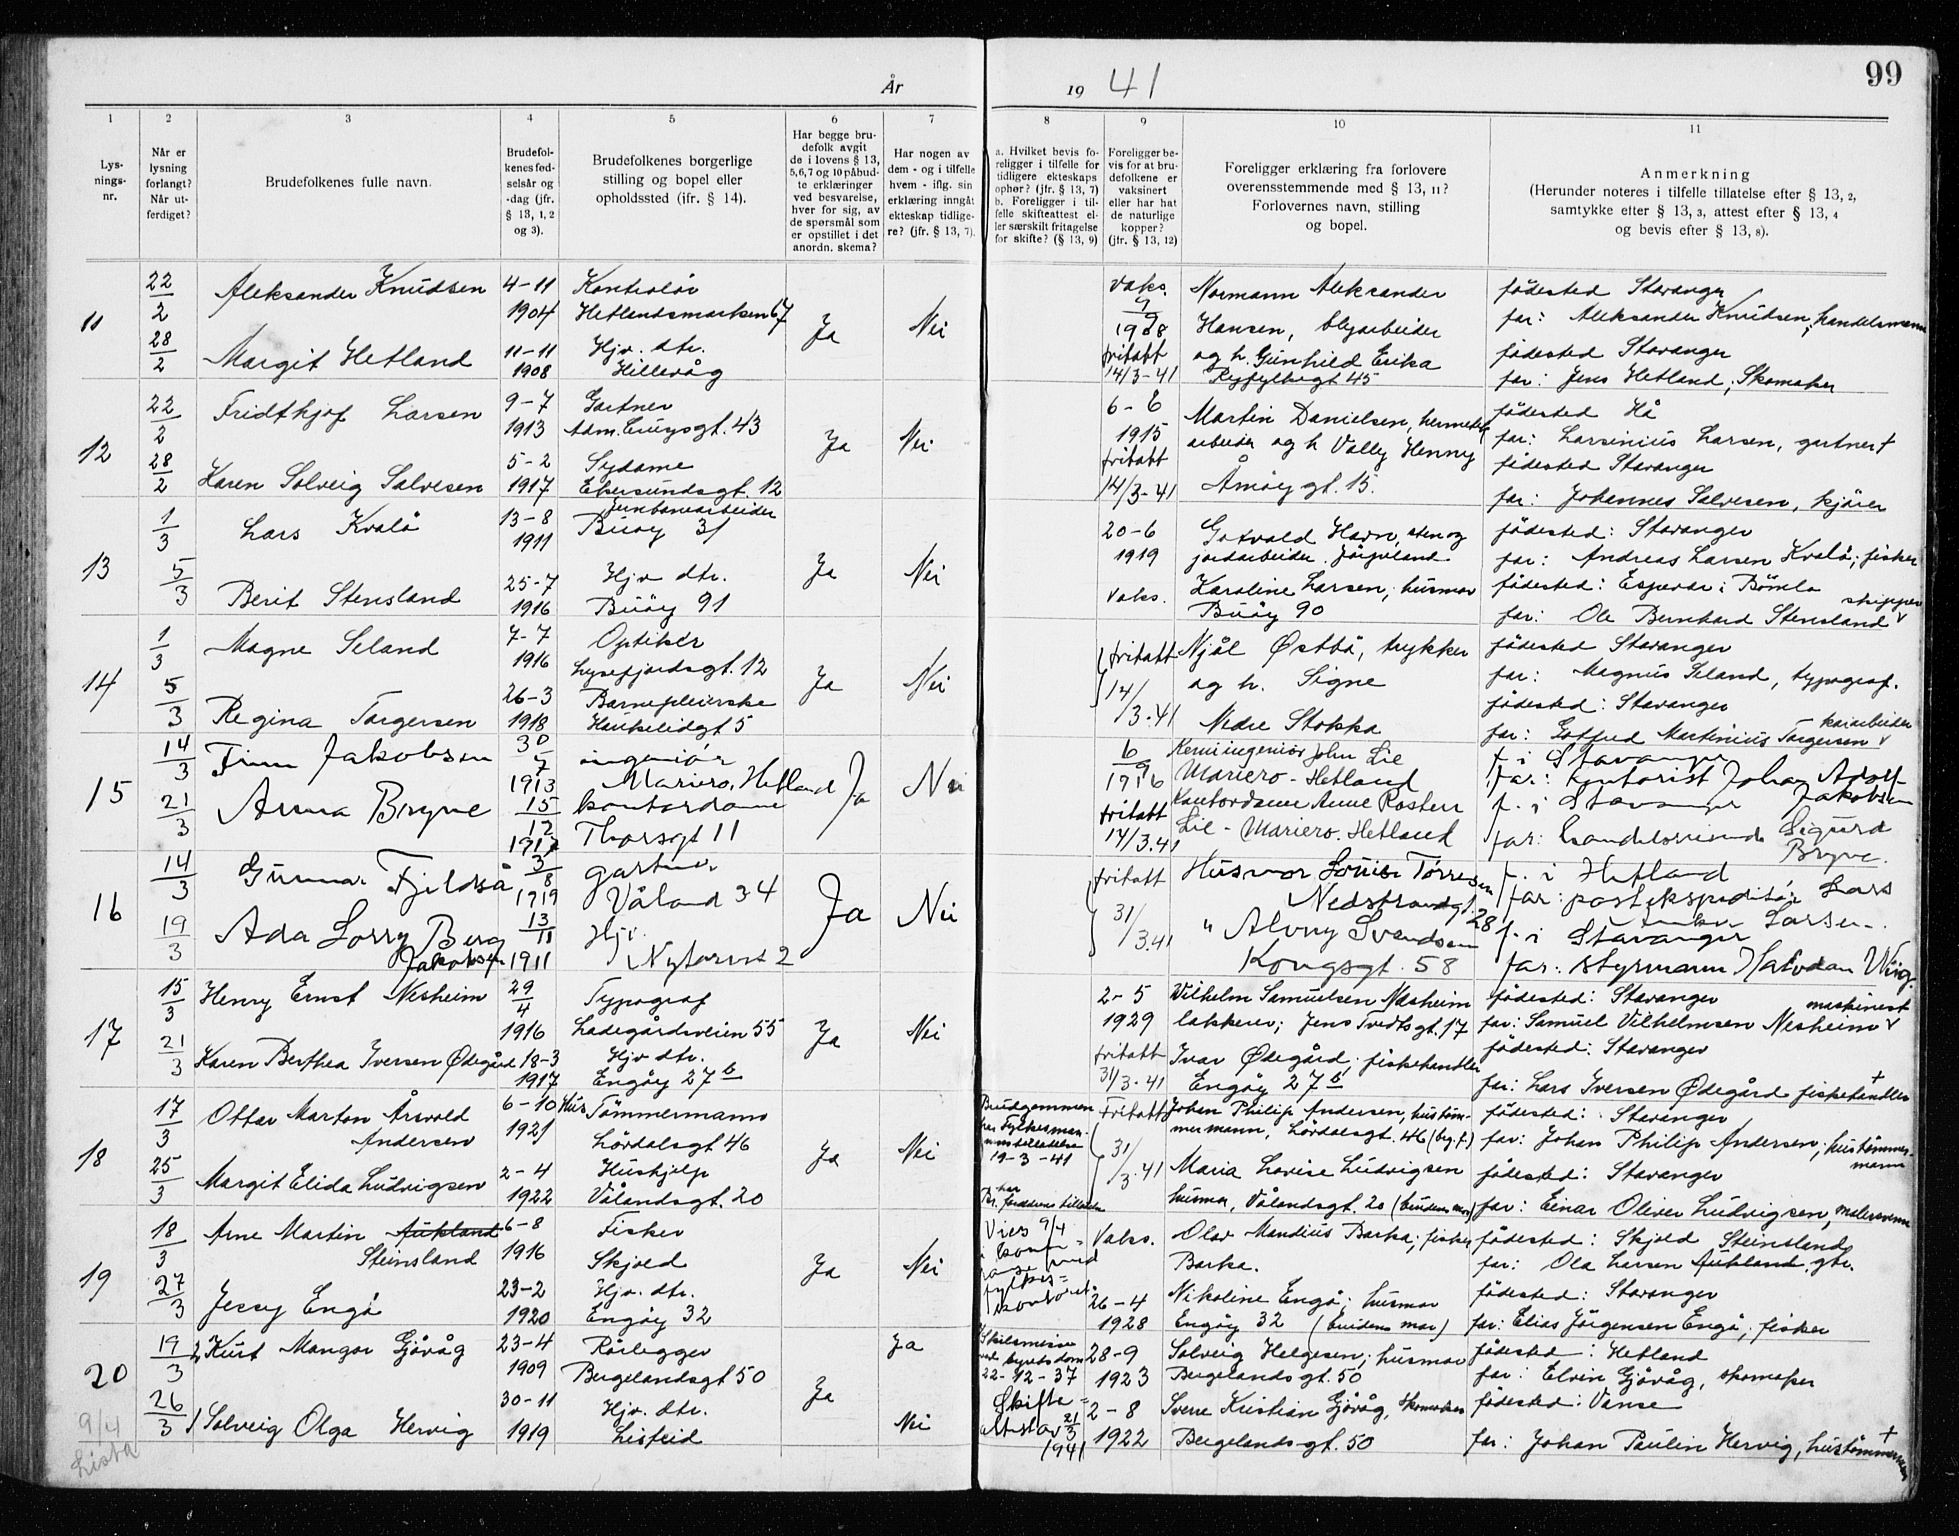 År 19 41
99
1 2 3 4 5 6 7 8 9 10 11
Lys-
nings-
nr.
Når er
lysning
forlangt?
Når ut-
ferdiget?
Brudefolkenes fulle navn.
Brudefol-
kenes fød-
selsår og
-dag (jfr.
§ 13, 1, 2
og 3).
Brudefolkenes borgerlige
stilling og bopel eller
opholdssted (jfr. § 14).
Har begge bru-
defolk avgit
de i lovens § 13,
5,6,7 og 10 påbud-
te erklæringer
ved besvarelse,
hver for sig, av
de spørsmål som
er opstillet i det
anordn. skema?
Har nogen av
dem - og i tilfelle
hvem - iflg. sin
erklæring inngått
ekteskap tidlige-
re? (jfr. § 13, 7).
a. Hvilket bevis fo-
religger i tilfelle for
tidligere ekteskaps
ophør? (jfr. § 13, 7)
b. Foreligger i til-
felle skifteattest el-
ler særskilt fritagelse
for skifte? (§ 13, 9)
Foreligger be-
vis for at bru-
defolkene er
vaksinert
eller har hat
de naturlige
kopper?
(jfr. § 13, 12)
Foreligger erklæring fra forlovere
overensstemmende med § 13, 11?
Forlovernes navn, stilling
og bopel.
Anmerkning
(Herunder noteres i tilfelle tillatelse efter § 13, 2,
samtykke efter § 13, 3, attest efter § 13, 4
og bevis efter § 13, 8).
11
22/2 Aleksander Knudsen 4-11 1904 Kontrolør
Hetlandsmarken 67
Ja Nei
vaks. 7/9 1908
Normann Aleksander
Hansen, blyarbeider
fødested Stavanger
far: Aleksander Knudsen, handelsmann
28/2 Margit Hetland 11-11 1908 Hjv. dtr.
Hillevåg
fritatt 14/3-41
og h. Gunhild Erika
Ryfylkegt 45
fødested Stavanger
far: Jens Hetland, Skomaker
12
22/2 Fridthjof Larsen 9-7 1913 Gartner
Adm. Cruysgt. 43
Ja Nei
6-6 1915
Martin Danielsen, hermetik
arbeider og h Vally Henny
fødested Hå
far: Larsinius Larsen, gartner †
28/2 Karen Solveig Salvesen 5-2 1917 Sydame
Ekersundsgt. 12
fritatt 14/3-41
Åmøy gt. 15.
fødested Stavanger
far: Johannes Salvesen, kjører
13
1/3 Lars Kvalø 13-8 1911 Jernbanearbeider
Buøy 31
Ja Nei
20-6 1919
Gotvald Havn, sten og
jordarbeider. Jørpeland
fødested: Stavanger
far: Andreas Larsen Kvalø; fisker
5/3 Berit Stensland 25-7 1916 Hjv dtr.
Buøy 91
vaks.
Karoline Larsen, husmor
Buøy 90
fødested: Espevær i Bømlo
far: Ole Bernhard Stensland skipper
14
1/3 Magne Seland 7-7 1916 Optiker
Lysefjordsgt. 12
Ja Nei
fritatt 14/3.41
Njål Østbø, trykker
og h. Signe
fødested Stavanger
far: Magnus Seland, typograf.
5/3 Regina Torgersen 26-3 1918 Barnepleierske
Haukelidgt 5
Nedre Stokka
fødested: Stavanger
far: Gotfred Martinius Torgersen kaiarbeider
15
14/3 Finn Jakobsen 30/7 1913 ingeniør
Mariero, Hetland
Ja Nei
6/9 1916
Kemiingeniør John Lie
Mariero - Hetland
f. i Stavanger
far: kontorist Johan Adolf
Jakobsen
21/3 Anna Bryne 15/12 1917 kontordame
Thorsgt 11
fritatt 14/3.41
Kontordame Anne Rosterr
Lie - Mariero. Hetland
f. i Stavanger
far: handelsreisende Sigurd
Bryne.
16
14/3 Gunnar Fjeldså 3/8 1919 gartner
Våland 34
Ja Nei
fritatt 31/3.41
Husmor Louise Tørresen
Nedstrandgt 28
f. i Hetland
far: postekspeditør Lars
Larsen.
19/3 Ada Lorry Berg
Jakobsen 13/11 1911 Hjv.
Nytorvet 2
" Alvny Svendsen
Kongsgt. 58
f. i Stavanger
far: styrmann Halvdan Wiig.
17
15/3 Henry Ernst Nesheim 29/4 1916 Typograf
Ladegårdsveien 55
Ja Nei
2-5 1929
Vilhelm Samuelsen Næsheim
lakkerer; Jens Tvedtsgt. 17
fødested: Stavanger
far: Samuel Vilhelmsen Nesheim maskinist
21/3 Karen Berthea Iversen Ødegård 18-3 1917 Hjv dtr.
Engøy 27 b
fritatt 31/3.41
Ivar Ødegård, fiskehandler
Engøy 27 b
fødested: Stavanger
far: Lars Iversen Ødegård fiskehandler †
18
17/3 Ottar Morton Årsvold
Andersen 6-10 1921 Hus Tømmermann
Lørdalsgt 46
Ja Nei
Brudgommen
har Fylkesman-
nens tilladelse
19-3-41
Fritatt 31/3.41
Johan Philip Andersen, hustøm-
mermann, Lørdalsgt. 46 (bg. f.)
fødested: Stavanger
far: Johan Philip Andersen, hustømmer-
mann
25/3 Margit Elida Ludvigsen 2-4 1922 Hushjelp
Vålandsgt. 20
Br. har foreldrenes tilladelse
Maria Lovise Ludvigsen
husmor, Vålandsgt. 20 (brudens mor)
fødested: Stavanger
far: Einar Oliver Ludvigsen, malersvenn
19
18/3 Arne Martin Aukland
Steinsland 6-8 1916 Fisker
Skjold
Ja Nei
Vies 9/4
Vaks.
Olav Mandius Barka, fisker
Barka.
fødested: Skjold Steinsland
far: Ola Larsen Aukland, gbr.
27/3 Jessy Engø 23-2 1920 Hjv. dtr.
Engøy 32
26-4 1928
Nikoline Engø; husmor
Engøy 32 (brudens mor)
fødested: Stavanger
far: Elias Jørgensen Engø, fisker
20
19/3 2 Kurt Mangor Gjøvåg 23-4 1909 Rørlegger
Bergelandsgt 50
Ja Ja
Skilsmisse
ved byretsdom
22-12-37
28-9 1923
Solveig Helgesen; husmor
Bergelandsgt. 50
fødested: Hetland
far: Elvin Gjøvåg, skomaker
26/3 1 Solveig Olga Hervig 30-11 1919 Hjv. dtr.
Lisfeid
Nei
Skifte-
attest av 21/3
1941
2-8 1922
Sverre Kristian Gjøvåg, skomaker
Bergelandsgt. 50
fødested: Vanse
far: Johan Paulin Hervig, hustømmermann †
9/4
Lista